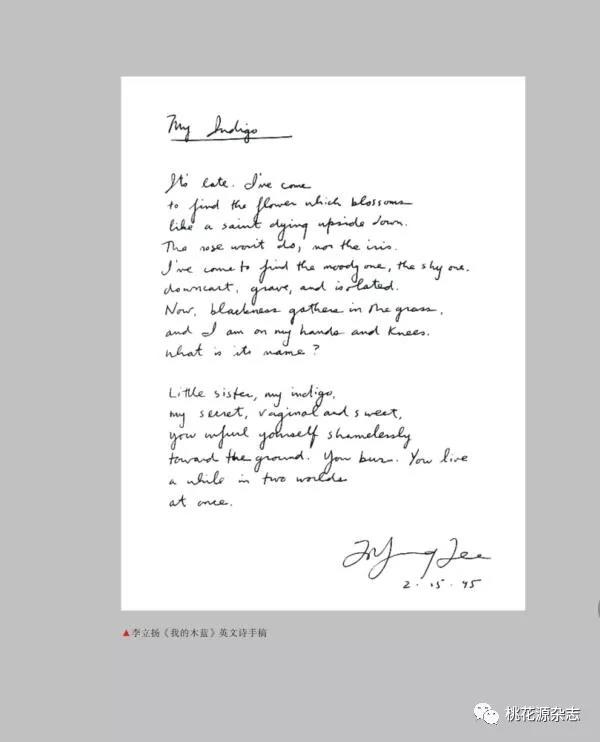 My Indigo
It's late. I've come
to find the flower which blossoms
like a saint dying upside down.
The rose won't do, nor the iris.
I've come to find the moody one, the shy one,
downcast, grave, and isolated.
Now, blackness gathers in the grass,
and I am on my hands and knees.
What is its name?
Little sister, my indigo,
my secret, vaginal and sweet,
you unfurl yourself shamelessly
toward the ground. You burn. You live
a while in two worlds
at once.
Li-Young Lee
2.15.95
▲李立扬《我的木蓝》英文诗手稿
桃花源杂志